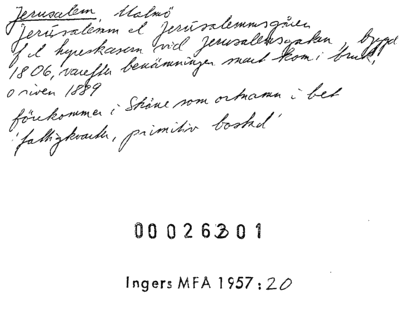 Jerusalem, Malmö
Jerusalem el Jerusalemsgården
f d hyreskasern vid Jerusalemsgatan, byggd
1806, varefter benämningen snart kom i bruk,
o riven 1889
förekommer i Skåne som ortnamn i bet
'fattigkvarter, primitiv bostad'
00026301
Ingers MFA 1957:20